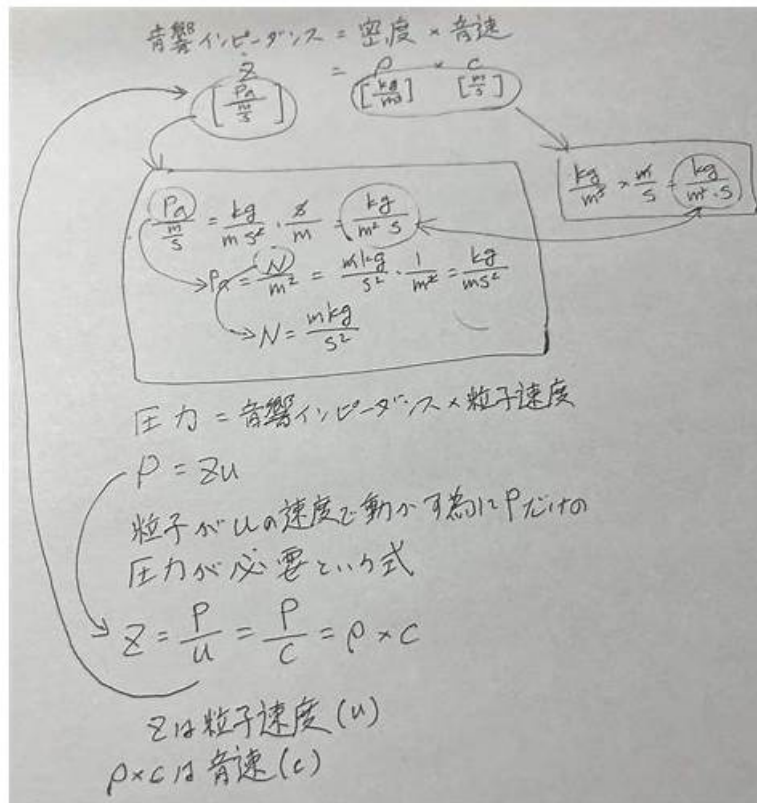 音響インピーダンス = 密度 × 音速
Z = ρ × c
[Pa/(m/s)] [kg/m³] [m/s]
kg/m³ × m/s = kg/(m²・s)
Pa/(m/s) = kg/(m s²)・s/m = kg/(m² s)
Pa = N/m² = mkg/s²・1/m² = kg/(ms²)
N = mkg/s²
圧力 = 音響インピーダンス × 粒子速度
P = Zu
粒子がuの速度で動かす為にPだけの
圧力が必要という式
Z = P/u = P/c = ρ × c
Zは粒子速度(u)
ρ×cは音速(c)